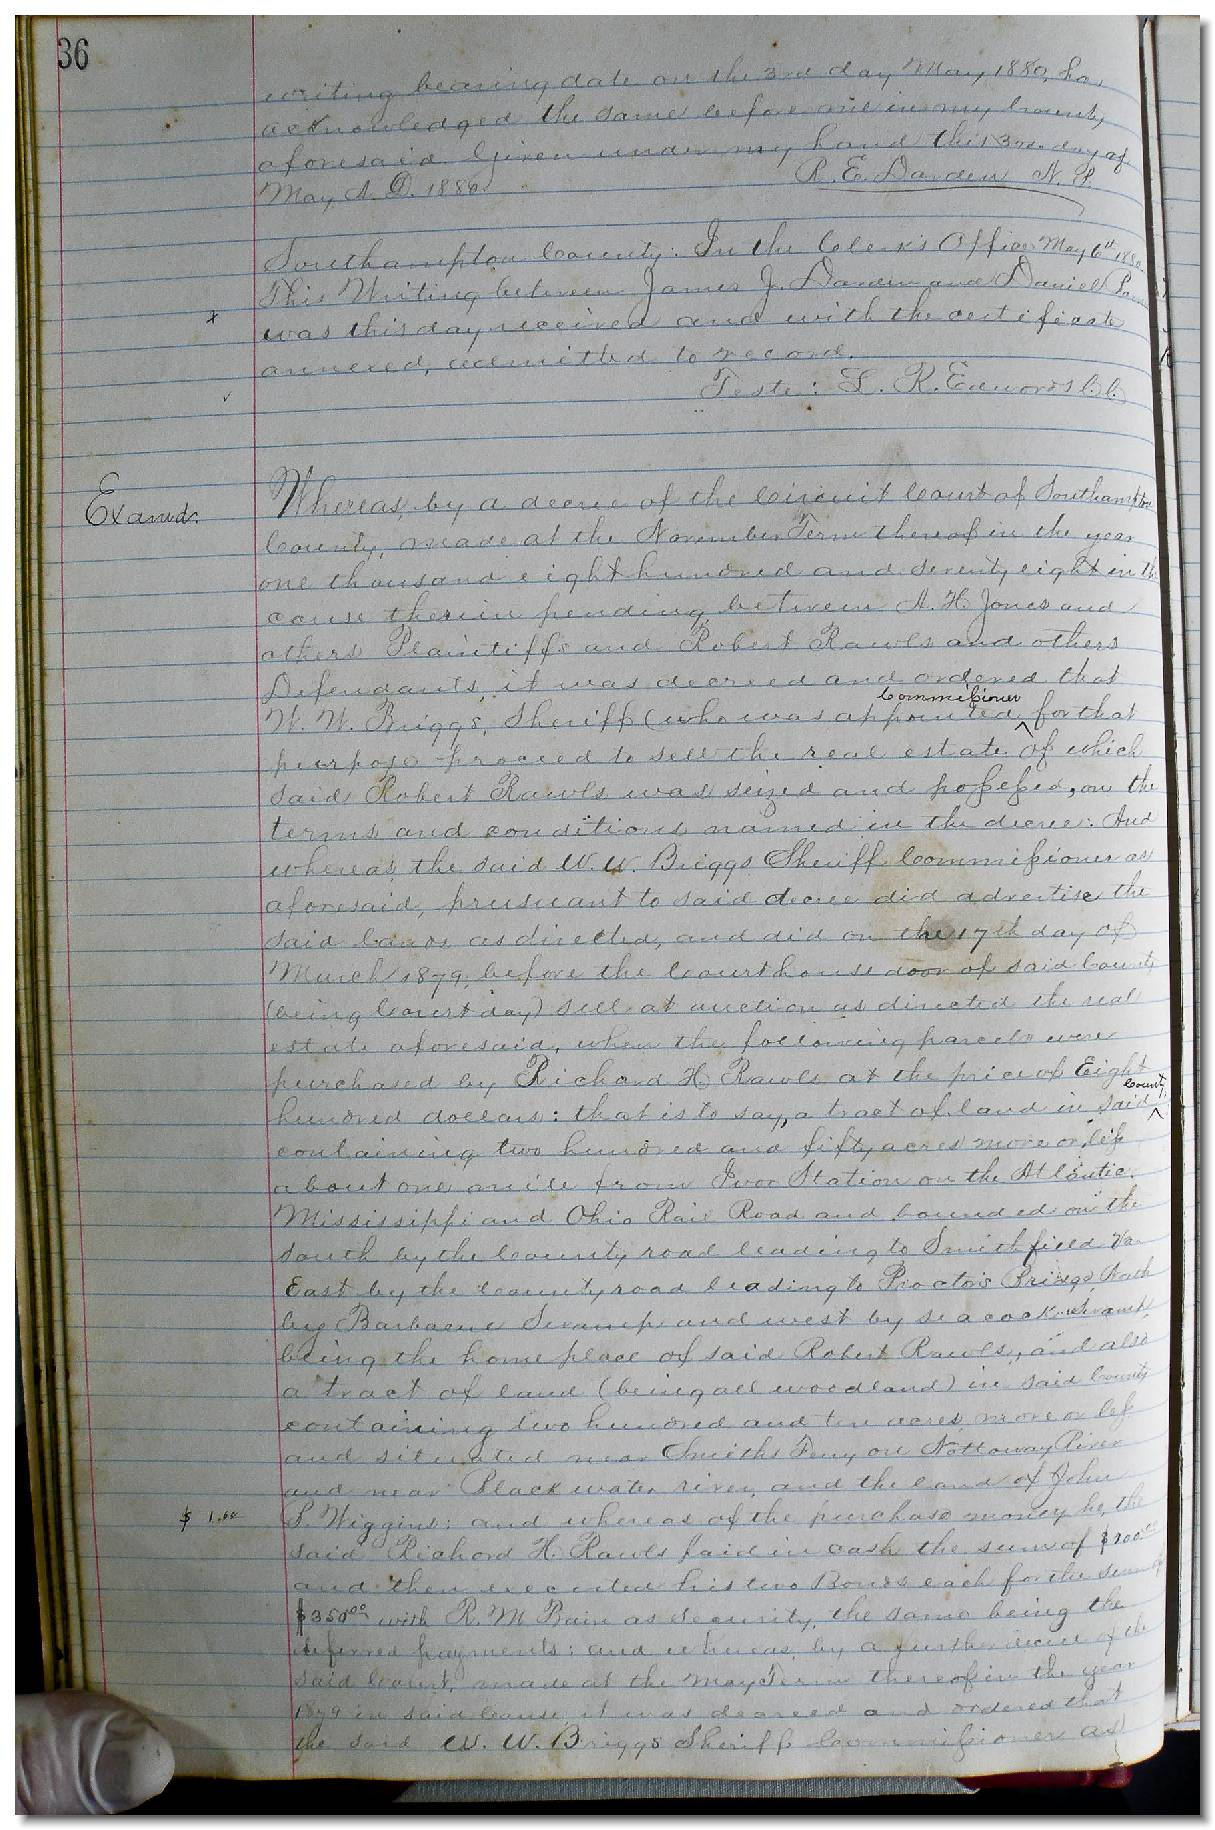 36
writing bearing date on the 3rd day May, 1880, has
acknowledged the same before me in my County
aforesaid. Given under my hand this 3rd day of
May, A. D. 1880. R. E. Darden N. P.
Southampton County: In the Clerk's Office May 6th 1880.
This Writing between James J. Darden and Daniel
x was this day received and with the certificate
annexed, admitted to record.
Teste: L. R. Edwards C.C.
Examd. Whereas, by a decree of the Circuit Court of Southampton
County, made at the November Term thereof in the year
one thousand eight hundred and seventy eight in the
cause therein pending between A. H. Jones and
others Plaintiffs and Robert Rawls and others
Defendants, it was decreed and ordered that
Commissioner
W. W. Briggs, Sheriff (who was appointed ^ for that
purpose proceed to sell the real estate of which
said Robert Rawls was seized and possessed, on the
terms and conditions named in the decree: And
whereas the said W. W. Briggs Sheriff Commissioner as
aforesaid, prusuant to said decree did advertise the
said lands as directed, and did on the 17th day of
March 1879, before the Courthouse door of said County
(being Court day) sell at auction as directed the real
estate aforesaid, when the following parcels were
purchased by Richard H. Rawls at the price of Eight
County
hundred dollars: that is to say, a tract of land in said ^
containing two hundred and fifty acres more or less
about one mile from Ivor Station on the Atlantic
Mississippi and Ohio Rail Road and bounded on the
South by the County road leading to Smithfield Va
East by the County road leading to Proctors Bridge, North
by Swamp and west by seacock Swamp,
being the home place of said Robert Rawls, and also
a tract of land (being all woodland) in said County
containing two hundred and ten acres more or less
and situated near Smiths Ferry on Nottoway River
and near Black water river, and the land of John
$ 1.60 S. Wiggins: and whereas of the purchase money he, the
said Richard H. Rawls paid in cash the sum of $100.00
and then executed his two Bonds each for the sum of
$350.00 with R. M. Bain as security, the same being the
deferred payments: and whereas, by a further decree of the
said Court, made at the May Term thereof in the year
1879 in said Cause it was decreed and ordered that
the said W. W. Briggs Sheriff Commissioner as